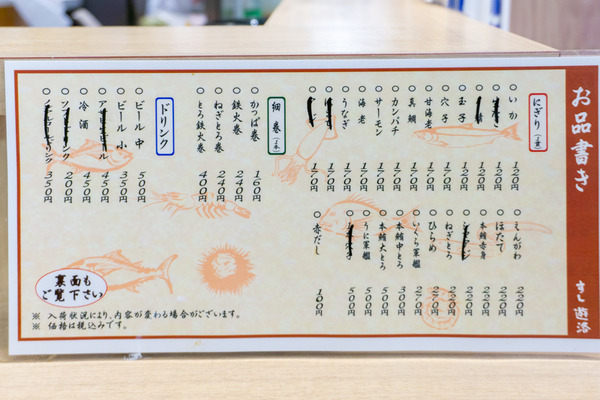 お品書き
すし 遊
にぎり(一貫)
○ いか 120円
○ 120円
○ 120円
○ 玉子 120円
○ 穴子 170円
○ 甘海老 170円
○ 真鯛 170円
○ カンパチ 170円
○ サーモン 170円
○ 海老 170円
○ うなぎ 170円
○ 170円
○ 170円
○ えんがわ 220円
○ ほたて 220円
○ 本鮪赤身 220円
○ 220円
○ ねぎとろ 220円
○ ひらめ 220円
○ いくら軍艦 270円
○ 本鮪中とろ 300円
○ 本鮪大とろ 500円
○ うに軍艦 500円
○ 500円
○ 赤だし 100円
細巻(一本)
○ かっぱ巻 160円
○ 鉄火巻 240円
○ ねぎとろ巻 240円
○ とろ鉄火巻 400円
ドリンク
○ ビール 中 500円
○ ビール 小 350円
○ 450円
○ 冷酒 450円
○ ソフトドリンク 200円
○ 350円
裏面も
ご覧下さい
※ 入荷状況により、内容が変わる場合がございます。
※ 価格は税込みです。